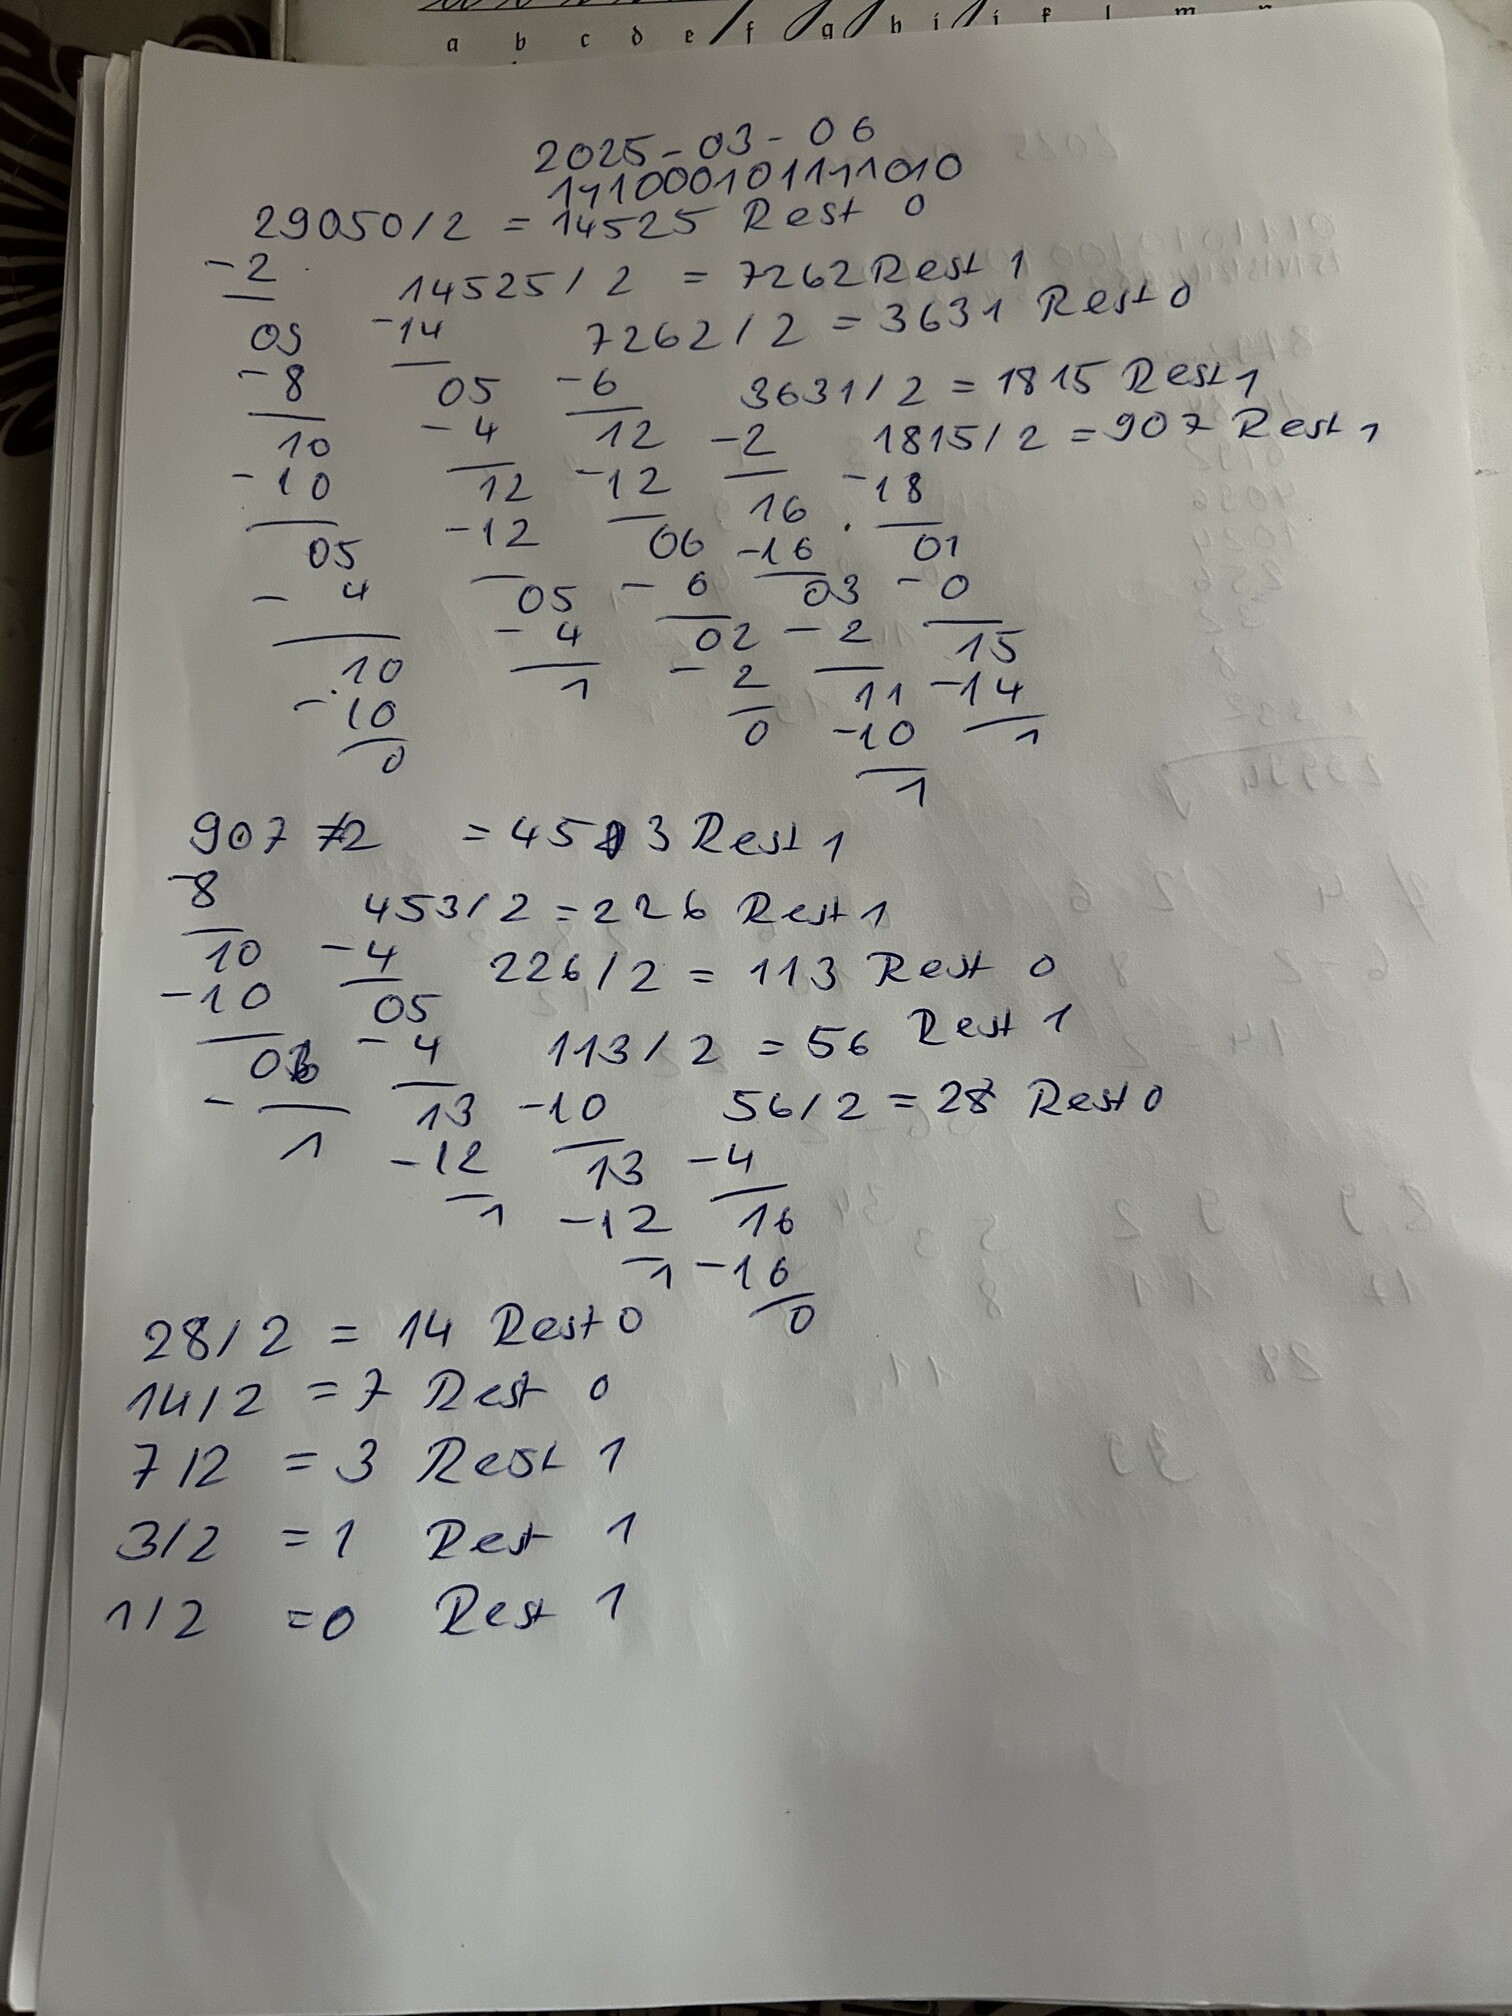 a b c d e f g h i j k l m n
2025-03-06
111000101111010
29050/2 = 14525 Rest 0
-2 14525/2 = 7262 Rest 1
09 -14 7262/2 = 3631 Rest 0
-8 05 -6 3631/2 = 1815 Rest 1
10 -4 12 -2 1815/2 = 907 Rest 1
-10 12 -12 16 -18
05 -12 06 -16 01
-4 05 -6 03 -0
10 -4 02 -2 15
-10 1 -2 11 -14
0 0 -10 1
1
907 /2 = 453 Rest 1
-8 453/2 = 226 Rest 1
10 -4 226/2 = 113 Rest 0
-10 05 113/2 = 56 Rest 1
0 -4 56/2 = 28 Rest 0
- 13 -10
1 -12 13 -4
1 -12 16
1 -16
28/2 = 14 Rest 0 0
14/2 = 7 Rest 0
7/2 = 3 Rest 1
3/2 = 1 Rest 1
1/2 = 0 Rest 1